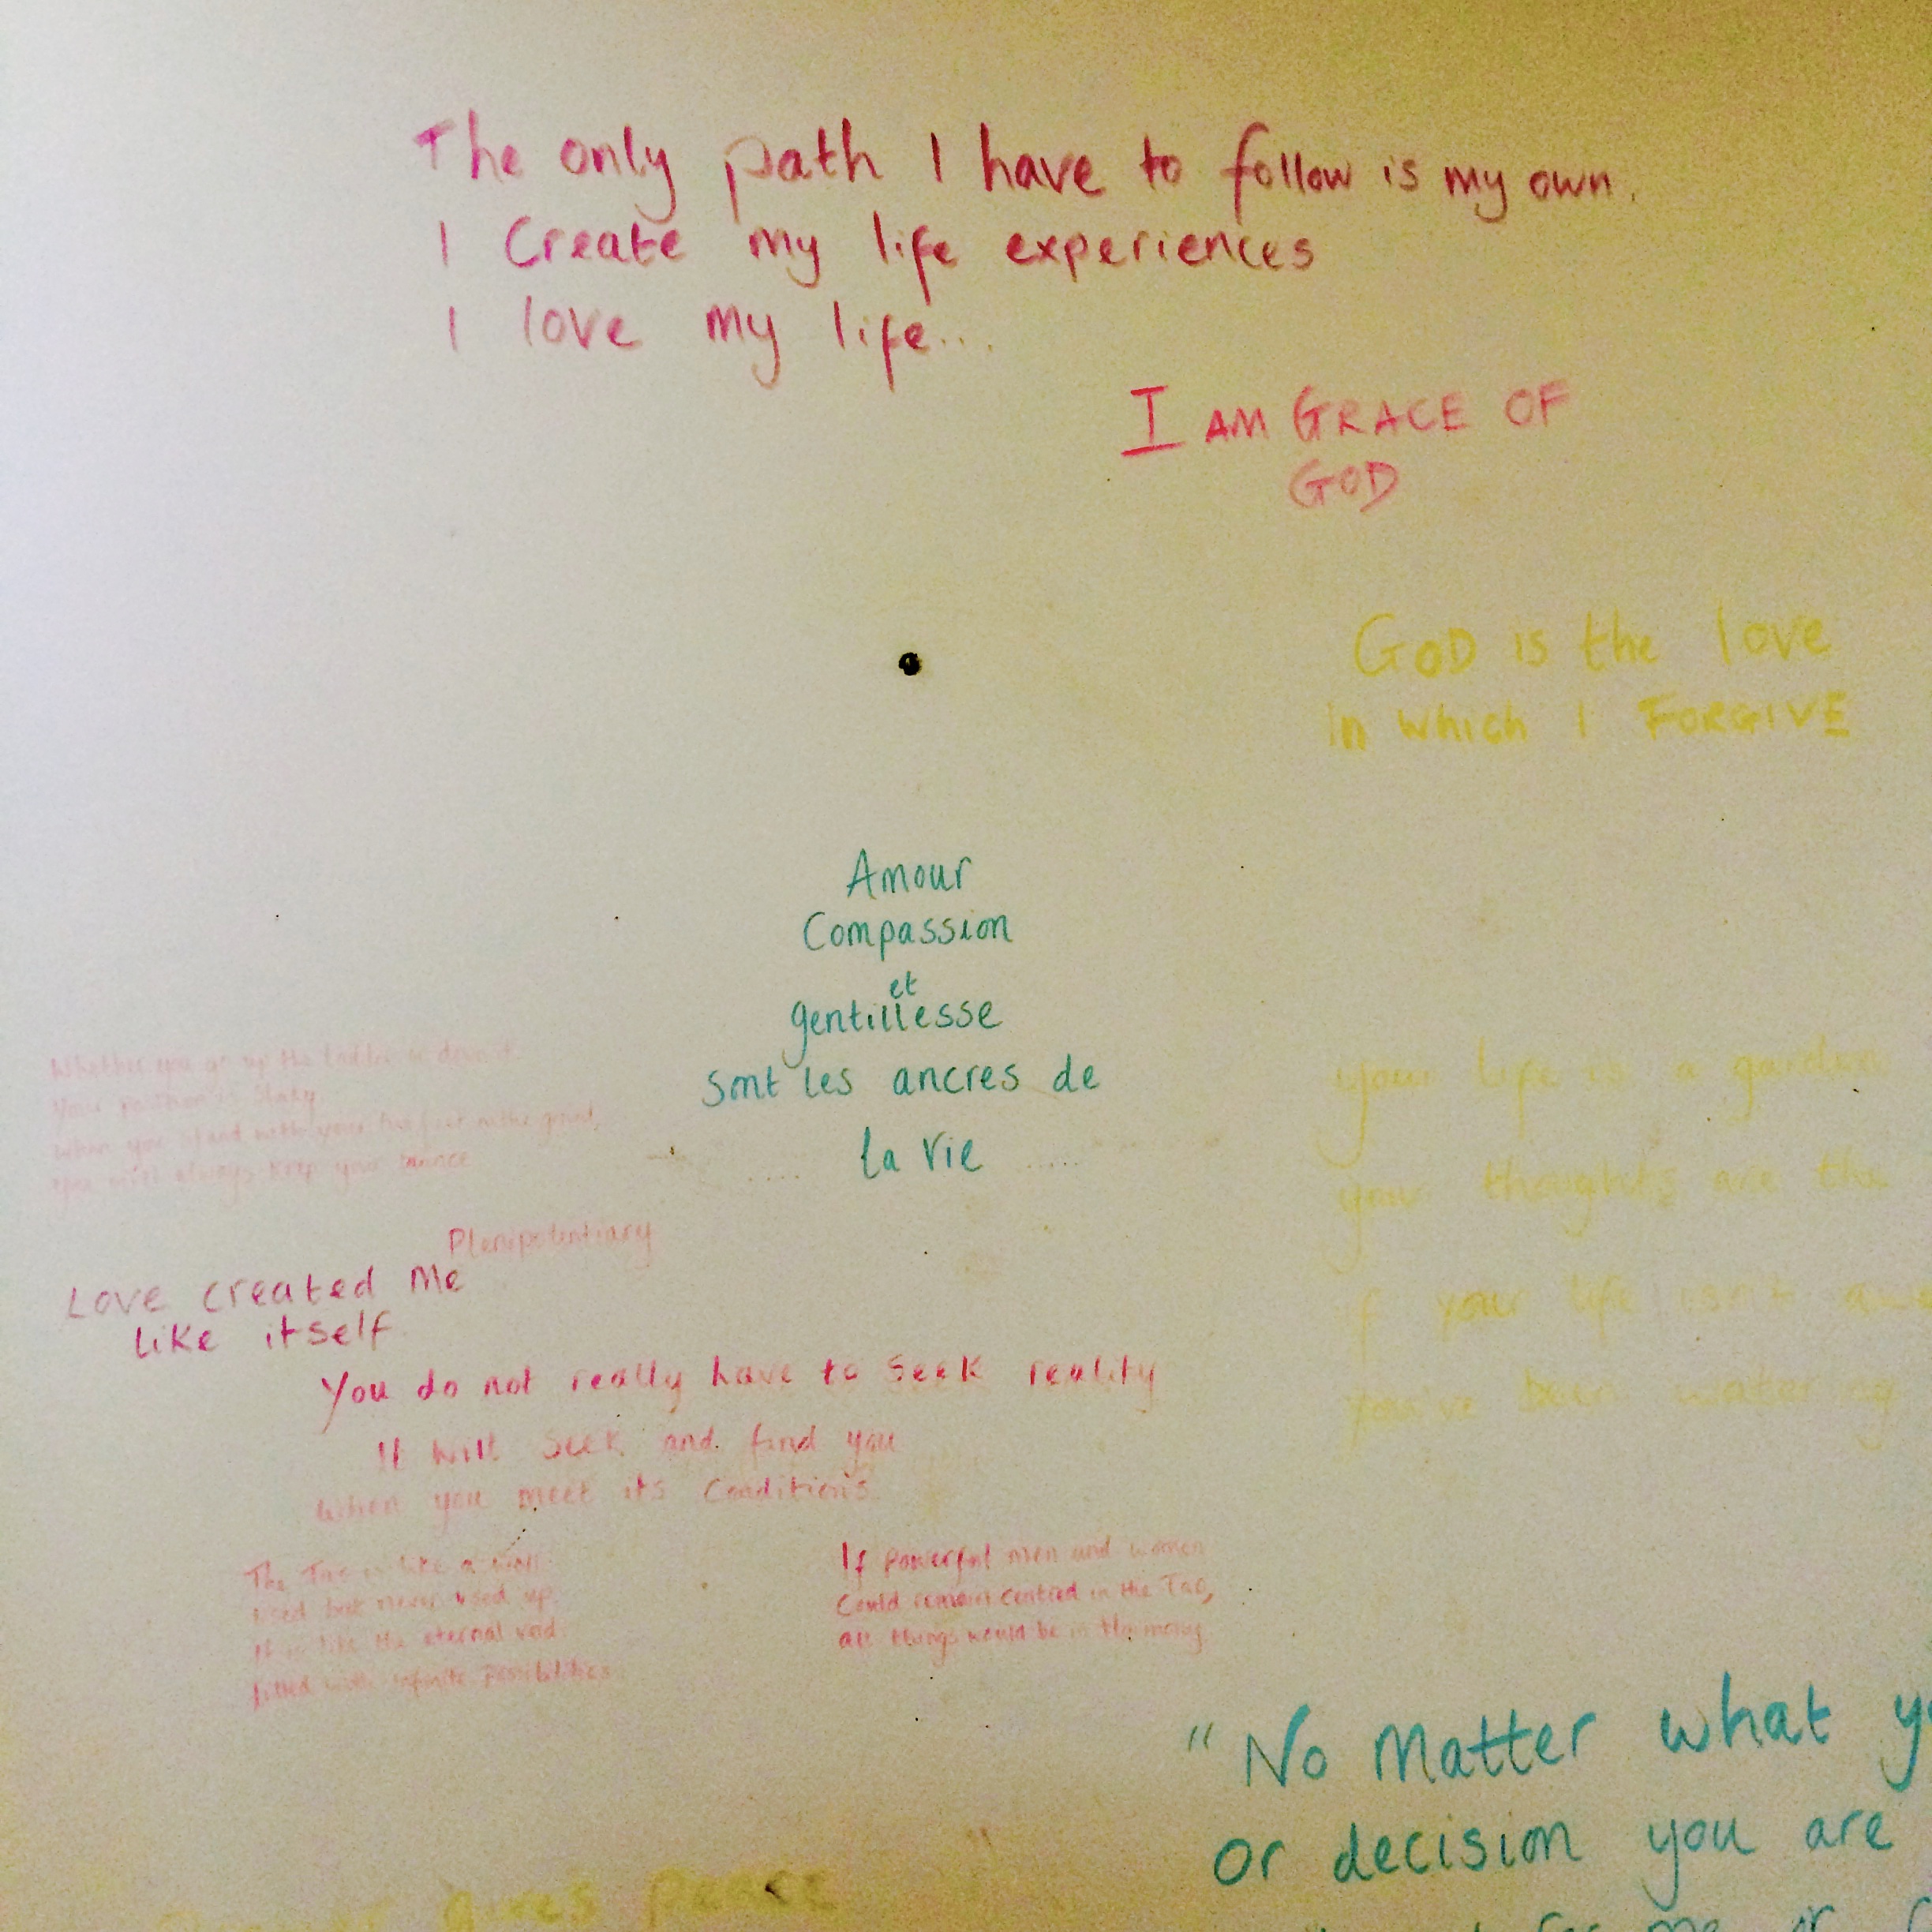 The only path I have to follow is my own.
I Create my life experiences
I love my life...
I AM GRACE OF
GOD
GOD is the love
in which I FORGIVE
Amour
Compassion
et
gentillesse
sont les ancres de
la vie .....
Whether you go up the ladder or down it
Your position is Shaky
When you stand with your two feet on the ground,
you will always keep your balance
your life is a garden
your thoughts are the
if your life isn't awe
you've been watering
Plenipotentiary
Love created me
like itself
You do not really have to seek reality
It will seek and find you
when you meet its Conditions
The Tao is like a well
used but never used up.
It is like the eternal void
filled with infinite possibilities
If powerful men and women
Could remain centred in the Tao,
all things would be in Harmony
"No Matter what y
or decision you are
gives peace
for me or